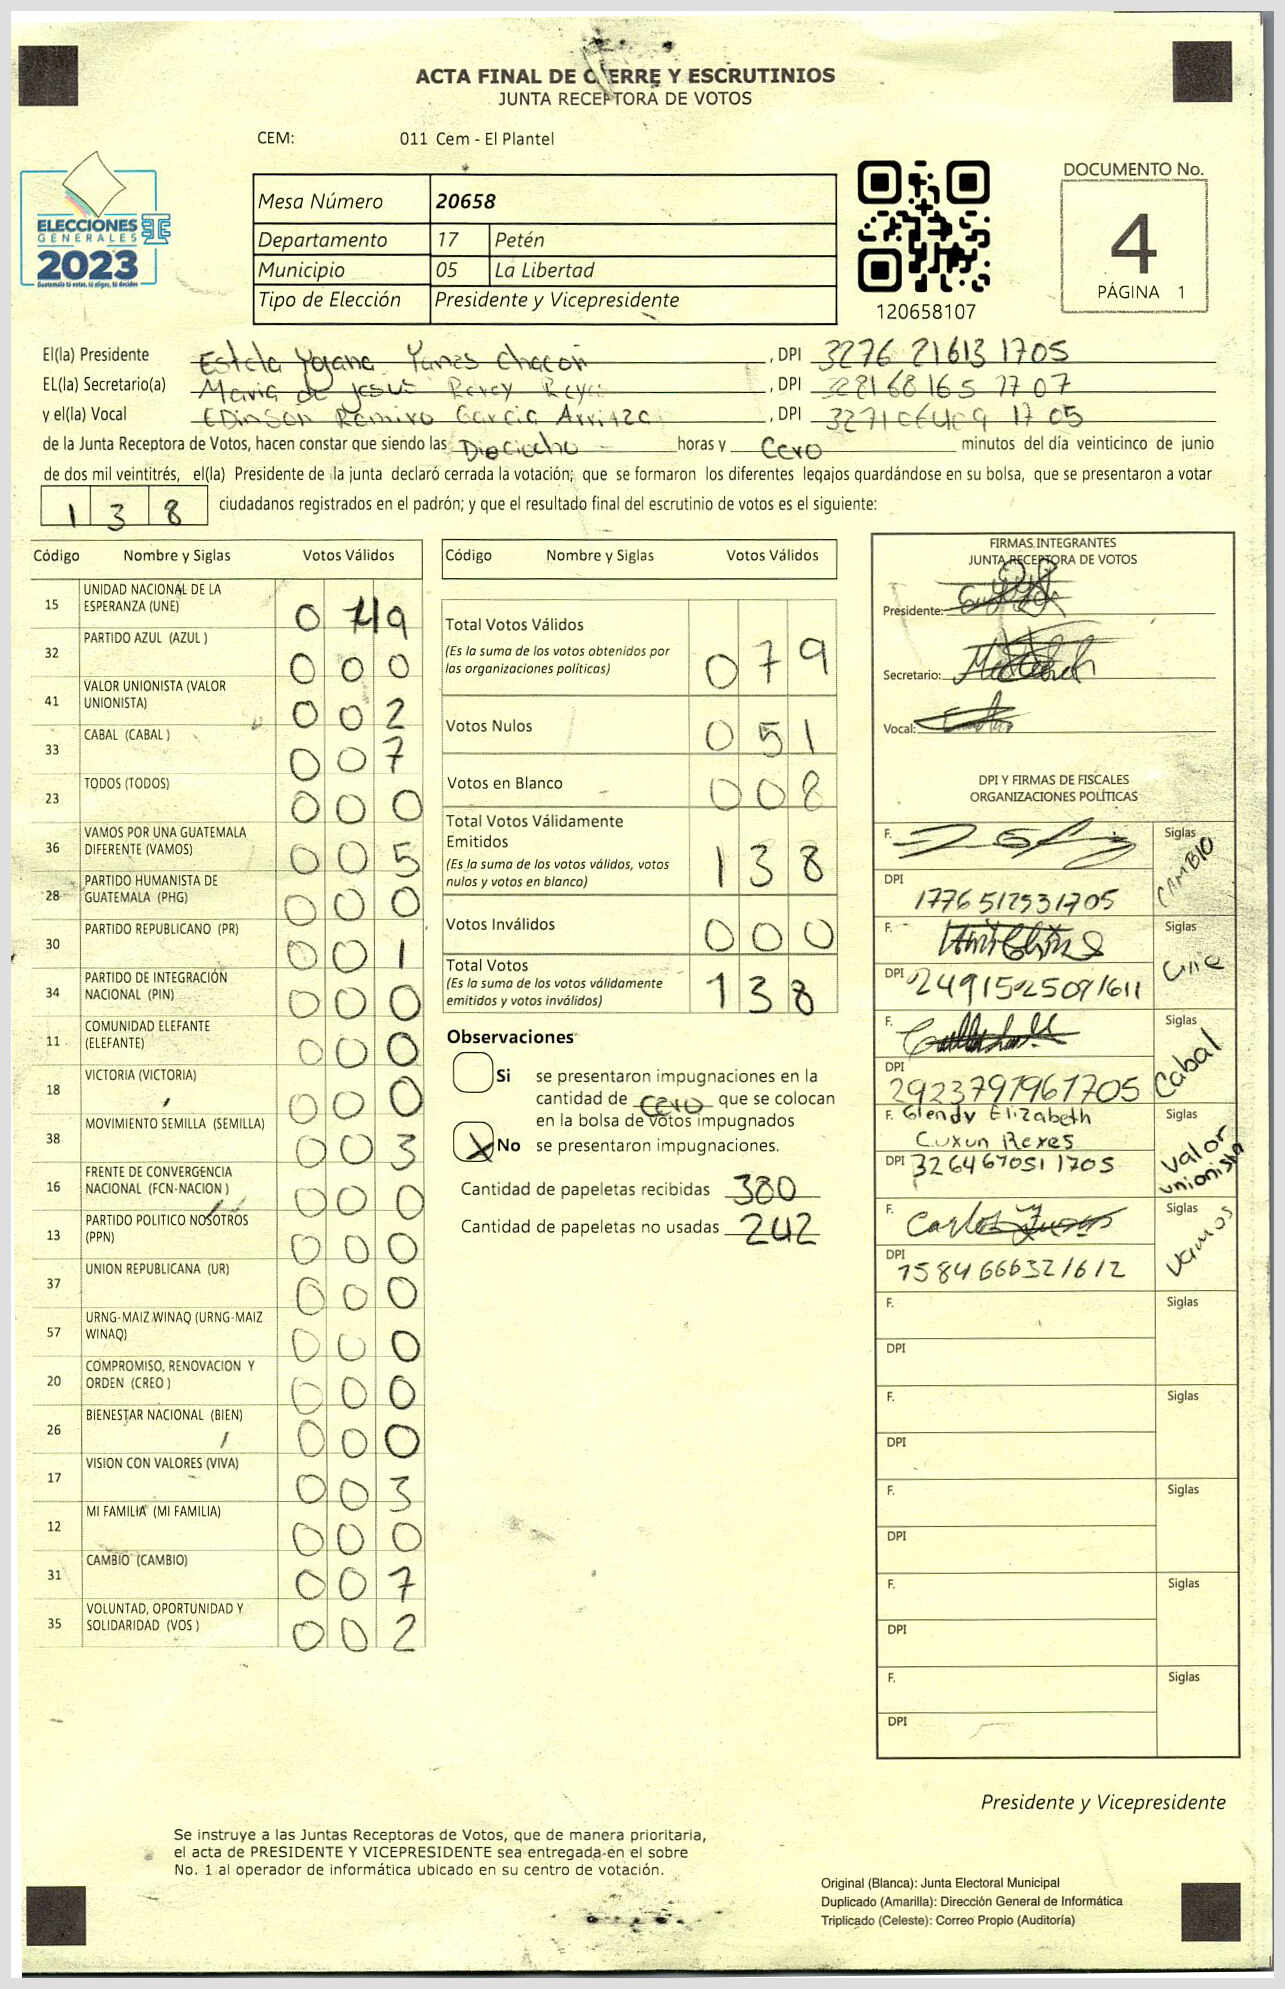 ACTA FINAL DE CIERRE Y ESCRUTINIOS
JUNTA RECEPTORA DE VOTOS
CEM: 011 Cem - El Plantel
ELECCIONES
GENERALES
2023
Guatemala tú votas, tú eliges, tú decides
Mesa Número 20658
Departamento 17 Petén
Municipio 05 La Libertad
Tipo de Elección Presidente y Vicepresidente
120658107
DOCUMENTO No.
4
PÁGINA 1
El(la) Presidente Estela Yanes Chacon, DPI 3276 21613 1705
EL(la) Secretario(a) Maria de Jesus, DPI 3281 68165 1707
y el(la) Vocal Edinson Ramiro Garcia, DPI 1705
de la Junta Receptora de Votos, hacen constar que siendo las Dieciocho horas y Cero minutos del día veinticinco de junio
de dos mil veintitrés, el(la) Presidente de la junta declaró cerrada la votación; que se formaron los diferentes legajos guardándose en su bolsa, que se presentaron a votar
138 ciudadanos registrados en el padrón; y que el resultado final del escrutinio de votos es el siguiente:
Código Nombre y Siglas Votos Válidos
15 UNIDAD NACIONAL DE LA ESPERANZA (UNE) 0 4 9
32 PARTIDO AZUL (AZUL ) 0 0 0
41 VALOR UNIONISTA (VALOR UNIONISTA) 0 0 2
33 CABAL (CABAL ) 0 0 7
23 TODOS (TODOS) 0 0 0
36 VAMOS POR UNA GUATEMALA DIFERENTE (VAMOS) 0 0 5
28 PARTIDO HUMANISTA DE GUATEMALA (PHG) 0 0 0
30 PARTIDO REPUBLICANO (PR) 0 0 1
34 PARTIDO DE INTEGRACIÓN NACIONAL (PIN) 0 0 0
11 COMUNIDAD ELEFANTE (ELEFANTE) 0 0 0
18 VICTORIA (VICTORIA) 0 0 0
38 MOVIMIENTO SEMILLA (SEMILLA) 0 0 3
16 FRENTE DE CONVERGENCIA NACIONAL (FCN-NACION ) 0 0 0
13 PARTIDO POLITICO NOSOTROS (PPN) 0 0 0
37 UNION REPUBLICANA (UR) 0 0 0
57 URNG-MAIZ WINAQ (URNG-MAIZ WINAQ) 0 0 0
20 COMPROMISO, RENOVACION Y ORDEN (CREO ) 0 0 0
26 BIENESTAR NACIONAL (BIEN) 0 0 0
17 VISION CON VALORES (VIVA) 0 0 3
12 MI FAMILIA (MI FAMILIA) 0 0 0
31 CAMBIO (CAMBIO) 0 0 7
35 VOLUNTAD, OPORTUNIDAD Y SOLIDARIDAD (VOS ) 0 0 2
Código Nombre y Siglas Votos Válidos
Total Votos Válidos 0 7 9
(Es la suma de los votos obtenidos por
las organizaciones políticas)
Votos Nulos 0 5 1
Votos en Blanco 0 0 8
Total Votos Válidamente
Emitidos 1 3 8
(Es la suma de los votos válidos, votos
nulos y votos en blanco)
Votos Inválidos 0 0 0
Total Votos 1 3 8
(Es la suma de los votos válidamente
emitidos y votos inválidos)
Observaciones
Si se presentaron impugnaciones en la
cantidad de Cero que se colocan
en la bolsa de votos impugnados
X No se presentaron impugnaciones.
Cantidad de papeletas recibidas 380
Cantidad de papeletas no usadas 242
FIRMAS INTEGRANTES
JUNTA RECEPTORA DE VOTOS
Presidente:
Secretario:
Vocal:
DPI Y FIRMAS DE FISCALES
ORGANIZACIONES POLÍTICAS
F. Siglas CAMBIO
DPI 1776 512531705
F. Siglas Une
DPI 2491525091611
F. Siglas Cabal
DPI 2923797961705
F. Glendy Elizabeth Siglas Valor
Cuxun Reyes unionista
DPI 3264670511705
F. Carlos Siglas Vamos
DPI 1584666321612
F. Siglas
DPI
F. Siglas
DPI
F. Siglas
DPI
F. Siglas
DPI
F. Siglas
DPI
Presidente y Vicepresidente
Se instruye a las Juntas Receptoras de Votos, que de manera prioritaria,
el acta de PRESIDENTE Y VICEPRESIDENTE sea entregada en el sobre
No. 1 al operador de informática ubicado en su centro de votación.
Original (Blanca): Junta Electoral Municipal
Duplicado (Amarilla): Dirección General de Informática
Triplicado (Celeste): Correo Propio (Auditoría)